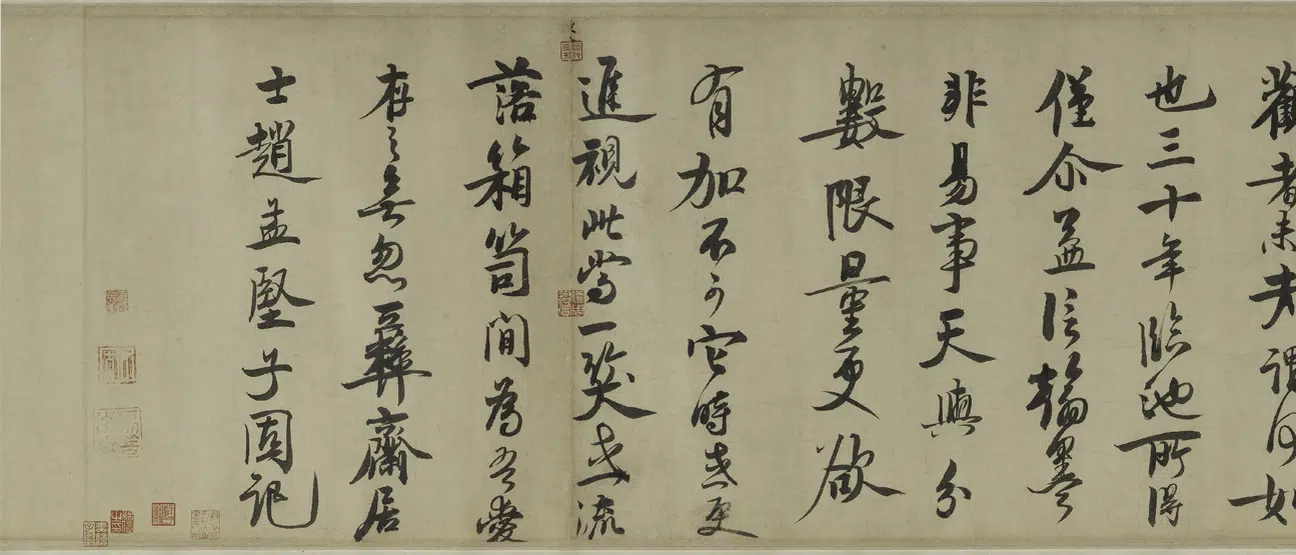 者未謂何如
也三十年臨池所得
僅尒益信翰墨
非易事天與分
數限量更欲
有加不可它時或更
進視此當一笑或流
落箱笥間為吾愛
存之無忽彝齋居
士趙孟堅子固記